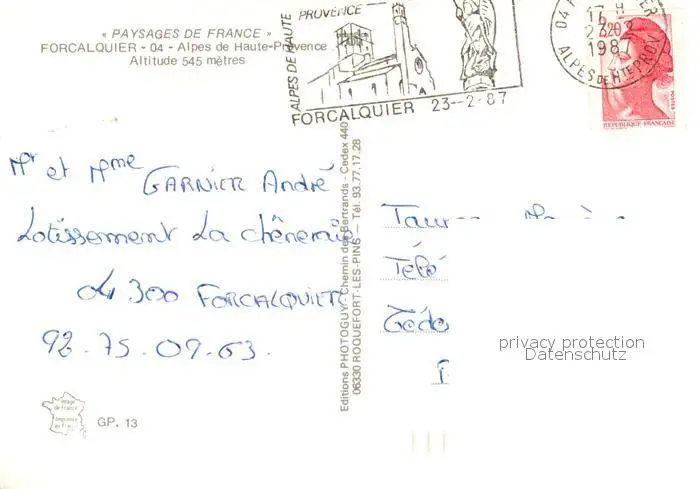 « PAYSAGES DE FRANCE »
FORCALQUIER - 04 - Alpes de Haute-Provence
Altitude 545 mètres
ALPES DE HAUTE
PROVENCE
FORCALQUIER 23--2-87
04
17 H
23-2
1987
ALPES DE HTE PROV.
2,20
POSTES
REPUBLIQUE FRANÇAISE
Mr et Mme GARNIER André
Lotissement La chêneraie
04 300 FORCALQUIER
92.75.09.63.
Editions PHOTOGUY, Chemin des Bertrands - Cedex 440
06330 ROQUEFORT-LES-PINS - Tél. 93.77.17.28
Image
de France
Imprimée
en France
GP. 13
privacy protection
Datenschutz